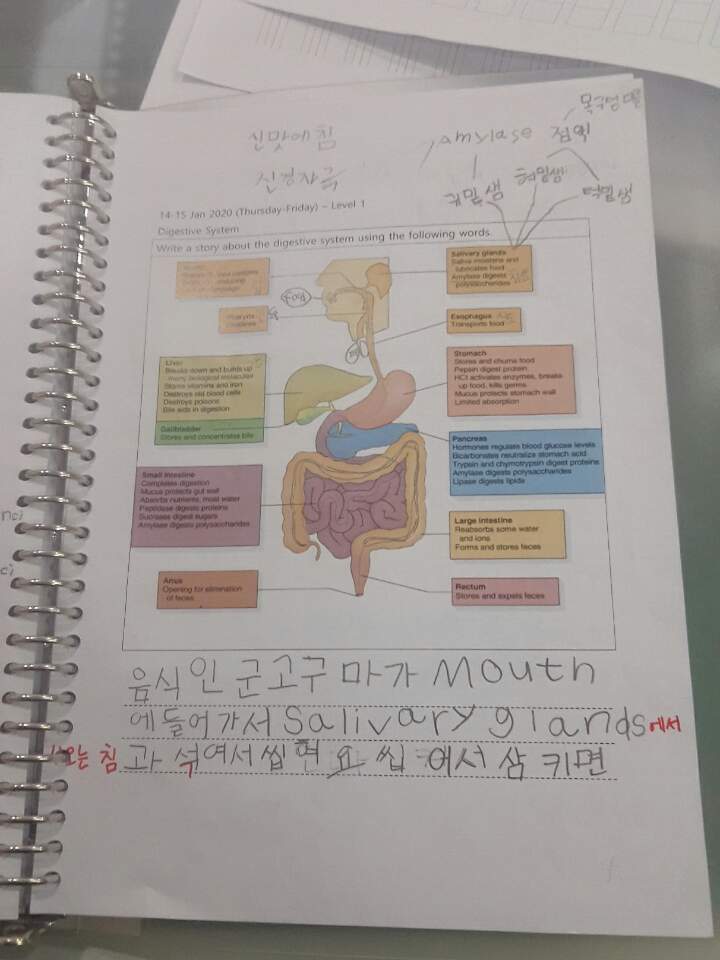 신맛에 침
신경자극
amylase 점액
목구멍
귀밑샘
혀밑샘
턱밑샘
14-15 Jan 2020 (Thursday-Friday) – Level 1
Digestive System
Write a story about the digestive system using the following words.
Food
Pharynx
Salivary glands
Saliva moistens and
lubricates food
Amylase digests
polysaccharides
Esophagus
Transports food
Liver
Breaks down and builds up
many biological molecules
Stores vitamins and iron
Destroys old blood cells
Destroys poisons
Bile aids in digestion
Gallbladder
Stores and concentrates bile
Stomach
Stores and churns food
Pepsin digest protein
HCl activates enzymes, breaks
up food, kills germs
Mucus protects stomach wall
Limited absorption
Pancreas
Hormones regulate blood glucose levels
Bicarbonates neutralize stomach acid
Trypsin and chymotrypsin digest proteins
Amylase digests polysaccharides
Lipase digests lipids
Small intestine
Completes digestion
Mucus protects gut wall
Absorbs nutrients, most water
Peptidase digests proteins
Sucrases digest sugars
Amylase digests polysaccharides
Large intestine
Reabsorbs some water
and ions
Forms and stores feces
Anus
Opening for elimination
of feces
Rectum
Stores and expels feces
음식인 군고구마가 Mouth
에 들어가서 Salivary glands에서
오는 침과 석여서 씹 씹어서 삼키면